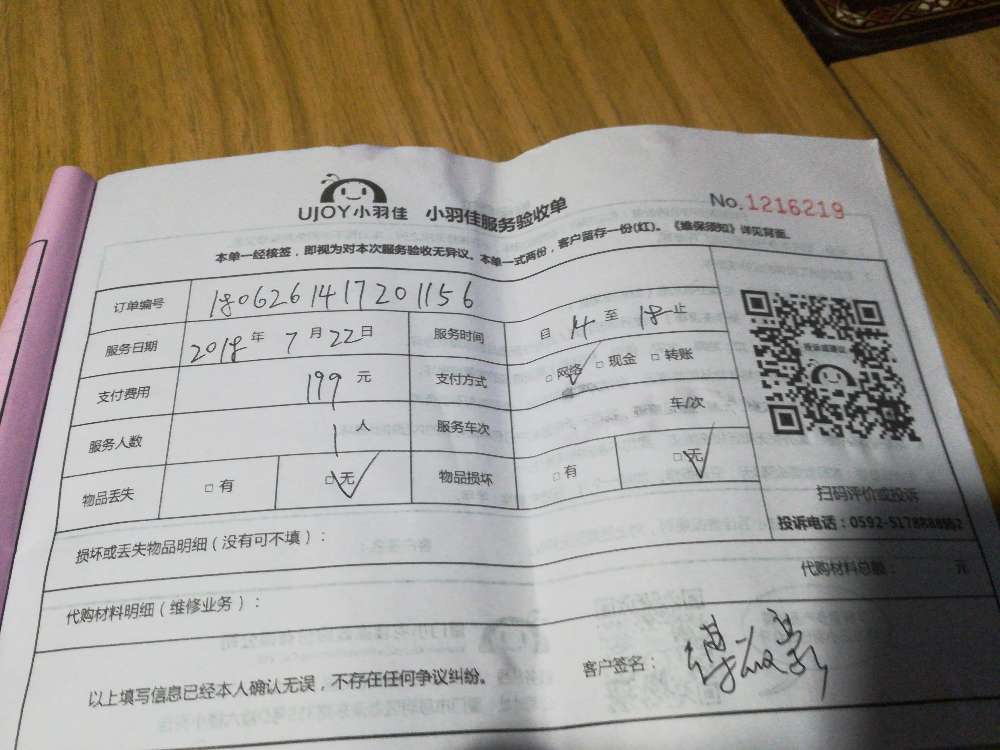 UJOY小羽佳 小羽佳服务验收单 No.1216219
本单一经核签，即视为对本次服务验收无异议。本单一式两份，客户留存一份(红)。《维保须知》详见背面。
订单编号 180626141720 1156
服务日期 2018年 7月22日 服务时间 自 14 至 18 止
支付费用 199 元 支付方式 □网络 □现金 □转账
服务人数 1 人 服务车次 车/次
物品丢失 □有 □无 物品损坏 □有 □无
扫码评价或投诉
损坏或丢失物品明细（没有可不填）：
代购材料明细（维修业务）： 代购材料总额： 元
以上填写信息已经本人确认无误，不存在任何争议纠纷。 客户签名：